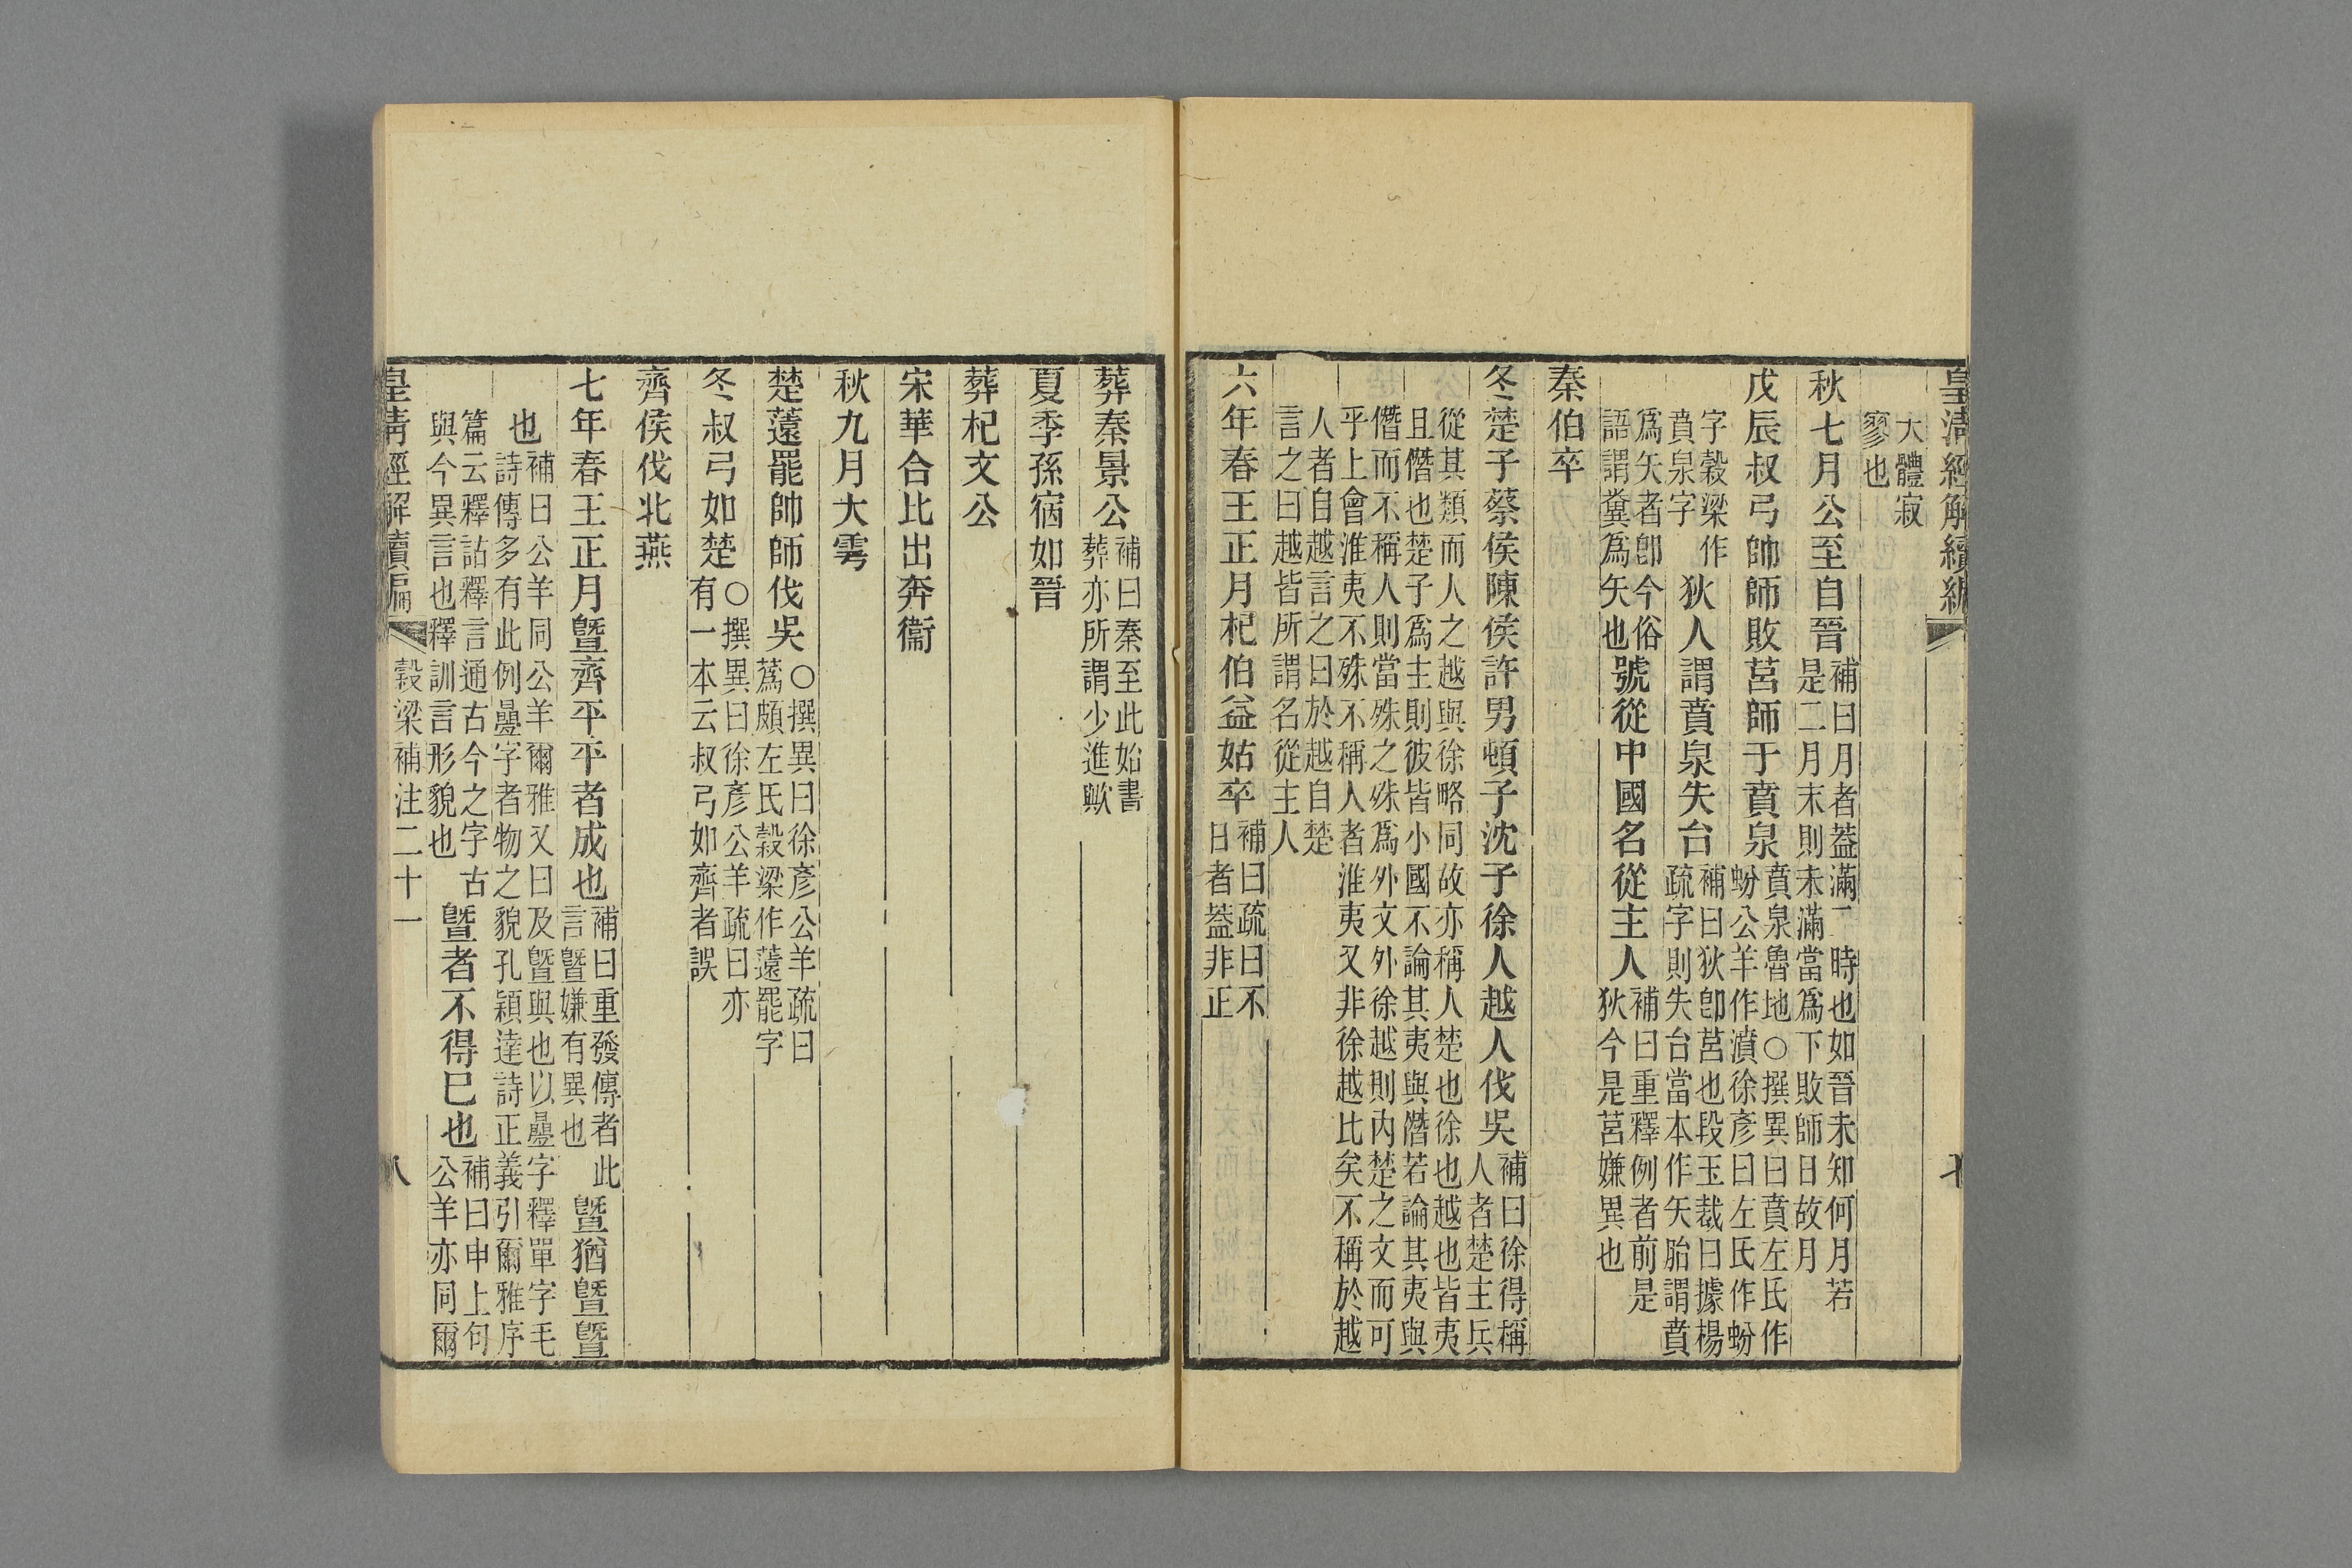 皇清經解續編
七
大體寂
寥也
秋七月公至自晉補曰月者葢滿二時也如晉未知何月若
是二月末則未滿當爲下敗師日故月
戊辰叔弓帥師敗莒師于賁泉賁泉魯地○撰異曰賁左氏作
蚡公羊作濆徐彥曰左氏作蚡
字穀梁作
賁泉字
狄人謂賁泉失台補曰狄卽莒也段玉裁曰據楊
疏字則失台當本作矢胎謂賁
爲矢者卽今俗
語謂糞爲矢也
號從中國名從主人補曰重釋例者前是
狄今是莒嫌異也
秦伯卒
冬楚子蔡侯陳侯許男頓子沈子徐人越人伐吳補曰徐得稱
人者楚主兵
從其類而人之越與徐略同故亦稱人楚也徐也越也皆夷
且僭也楚子爲主則彼皆小國不論其夷與僭若論其夷與
僭而不稱人則當殊之殊爲外文外徐越則内楚之文而可
乎上會淮夷不殊不稱人者淮夷又非徐越比矣不稱於越
人者自越言之曰於越自楚
言之曰越皆所謂名從主人
六年春王正月杞伯益姑卒補曰疏曰不
日者葢非正
葬秦景公補曰秦至此始書
葬亦所謂少進歟
夏季孫宿如晉
葬杞文公
宋華合比出奔衞
秋九月大雩
楚薳罷帥師伐吳○撰異曰徐彥公羊疏曰
蒍頗左氏穀梁作薳罷字
冬叔弓如楚○撰異曰徐彥公羊疏曰亦
有一本云叔弓如齊者誤
齊侯伐北燕
七年春王正月曁齊平平者成也補曰重發傳者此
言曁嫌有異也
曁猶曁曁
也補曰公羊同公羊爾雅又曰及曁與也以㬪字釋單字毛
詩傳多有此例㬪字者物之貌孔穎達詩正義引爾雅序
篇云釋詁釋言通古今之字古
與今異言也釋訓言形貌也
曁者不得已也補曰申上句
公羊亦同爾
皇淸經解續編
穀梁補注二十一
八